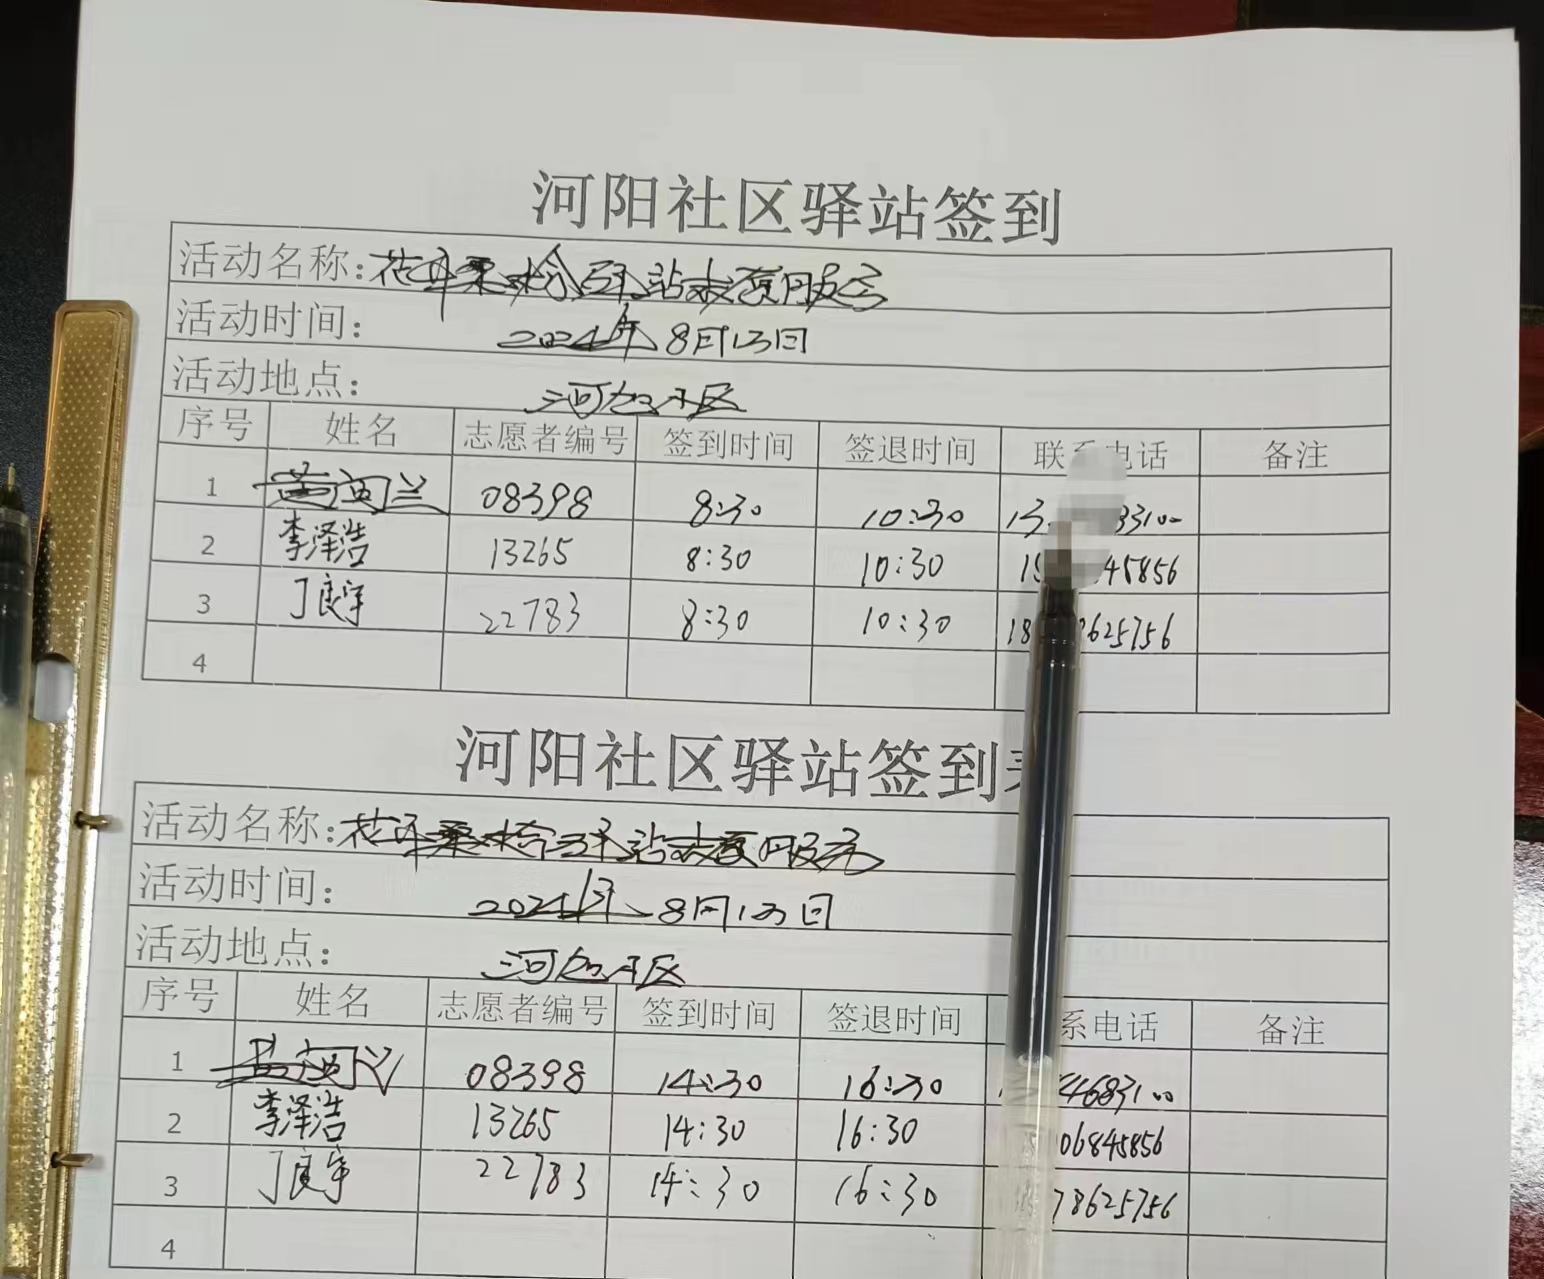 河阳社区驿站签到
活动名称：花年桑榆驿站志愿服务
活动时间： 2024年8月13日
活动地点： 河阳社区
序号 姓名 志愿者编号 签到时间 签退时间 联系电话 备注
1 兰 08398 8:30 10:30
2 李泽浩 13265 8:30 10:30 45856
3 丁良宇 22783 8:30 10:30 18 8625756
4
河阳社区驿站签到
活动名称：花年桑榆驿站志愿服务
活动时间： 2024年8月13日
活动地点： 河阳社区
序号 姓名 志愿者编号 签到时间 签退时间 系电话 备注
1 08398 14:30 16:30 4683100
2 李泽浩 13265 14:30 16:30 06845856
3 丁良宇 22783 14:30 16:30 78625756
4